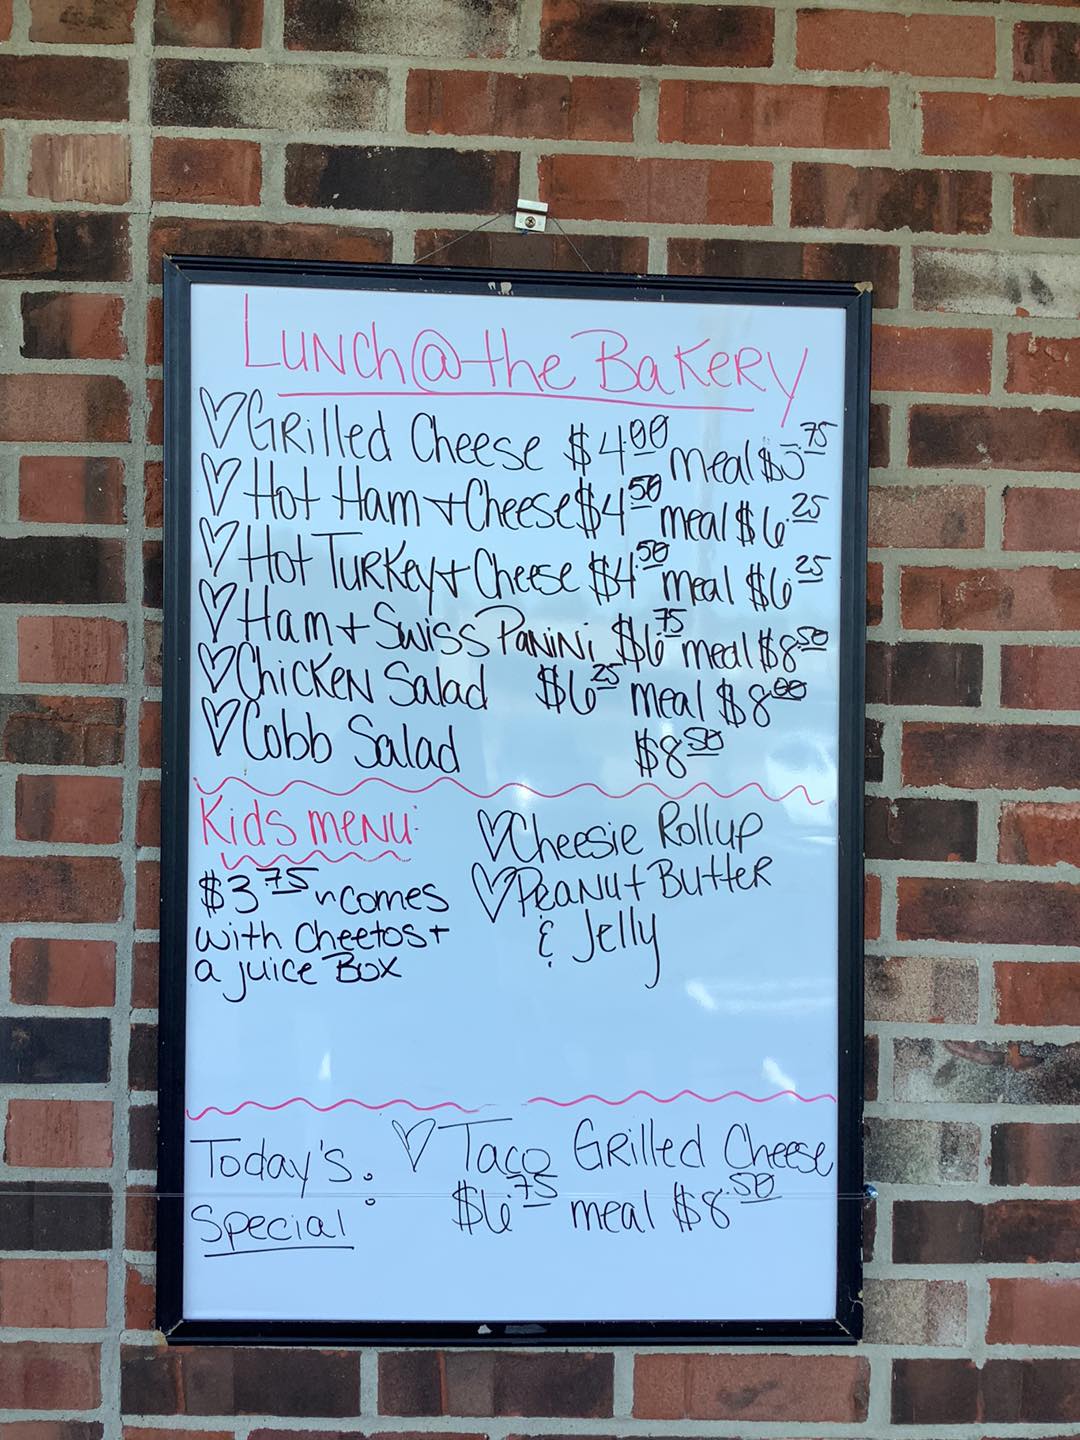 Lunch@the Bakery
Grilled Cheese $4.00 meal $5.75
Hot Ham + Cheese $4.50 meal $6.25
Hot Turkey + Cheese $4.50 meal $6.25
Ham + Swiss Panini $6.75 meal $8.50
Chicken Salad $6.25 meal $8.00
Cobb Salad $8.50
Kids menu:
$3.75 comes
with Cheetos +
a juice Box
Cheesie Rollup
Peanut Butter
& Jelly
Today's:
Special
Taco Grilled Cheese
$6.75 meal $8.50